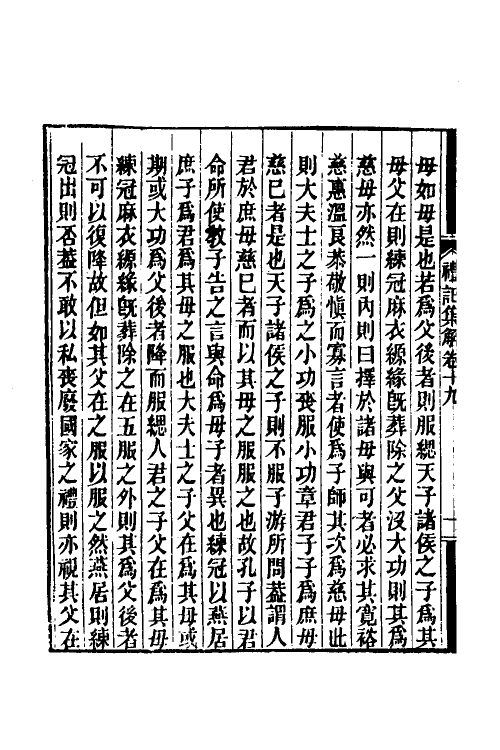 禮記集解卷十九
母如母是也若爲父後者則服緦天子諸侯之子爲其
母父在則練冠麻衣縓緣旣葬除之父沒大功則其爲
慈母亦然一則內則曰擇於諸母與可者必求其寬裕
慈惠溫良恭敬愼而寡言者使爲子師其次爲慈母此
則大夫士之子爲之小功喪服小功章君子子爲庶母
慈已者是也天子諸侯之子則不服子游所問蓋謂人
君於庶母慈已者而以其母之服服之也故孔子以君
命所使敎子告之言與命爲母子者異也練冠以燕居
庶子爲君爲其母之服也大夫士之子父在爲其母或
期或大功爲父後者降而服緦人君之子父在爲其母
練冠麻衣縓緣旣葬除之在五服之外則其爲父後者
不可以復降故但如其父在之服以服之然燕居則練
冠出則否蓋不敢以私喪廢國家之禮則亦視其父在